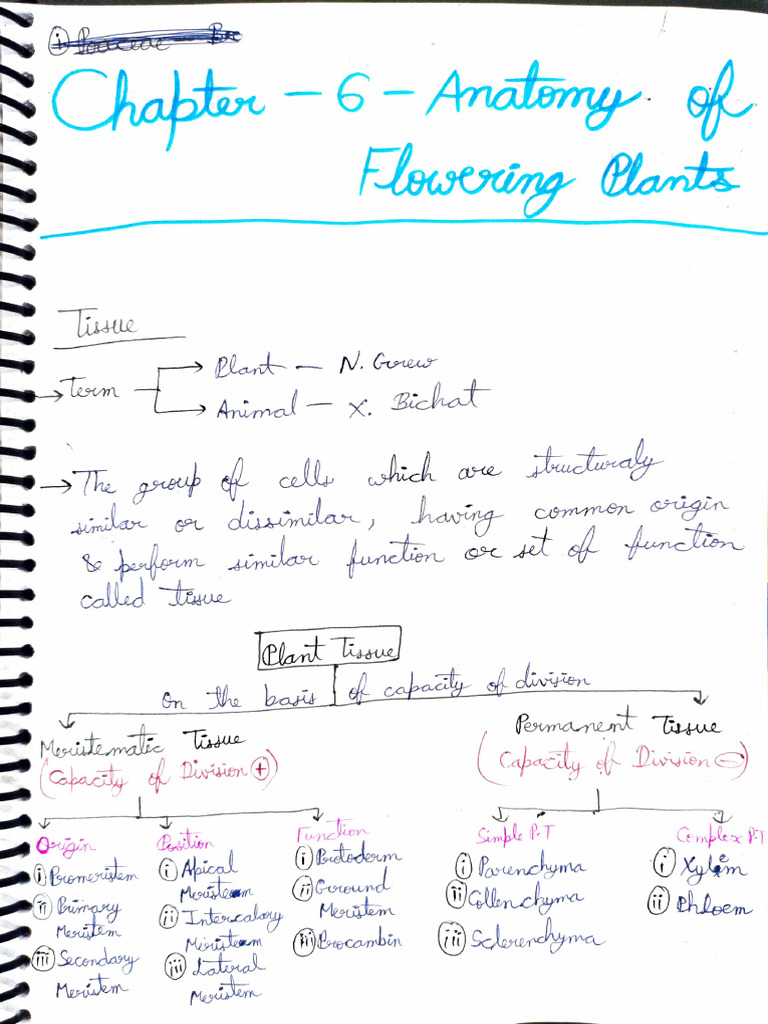 Chapter - 6 - Anatomy of
Flowering Plants
Tissue
→ Term
Plant — N. Grew
Animal — X. Bichat
→ The group of cells which are structuraly
similar or dissimilar, having common origin
& perform similar function or set of function
called tissue
Plant Tissue
on the basis of capacity of division
Meristematic Tissue
(Capacity of Division +)
Permanent Tissue
(Capacity of Division -)
Origin
i Promeristem
ii Primary
Meristem
iii Secondary
Meristem
Position
i Apical
Meristem
ii Intercalary
Meristem
iii Lateral
Meristem
Function
i Protoderm
ii Ground
Meristem
iii Procambin
Simple P.T
i Parenchyma
ii Collenchyma
iii Sclerenchyma
Complex P.T
i Xylem
ii Phloem